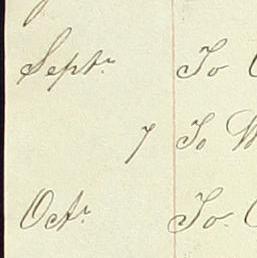 Septr. To
7 To
Octr. To.